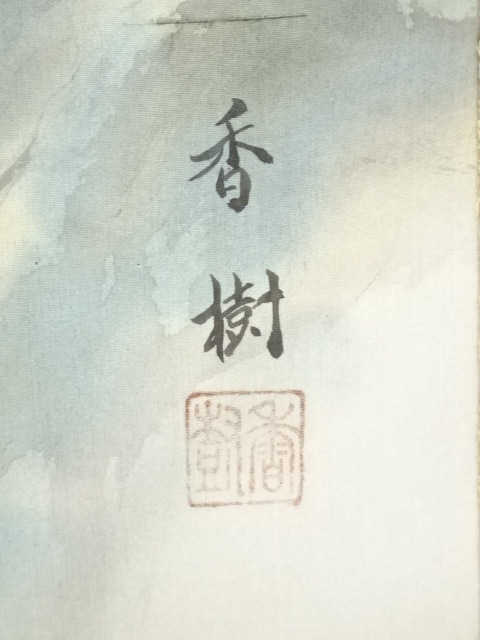 香樹
香樹